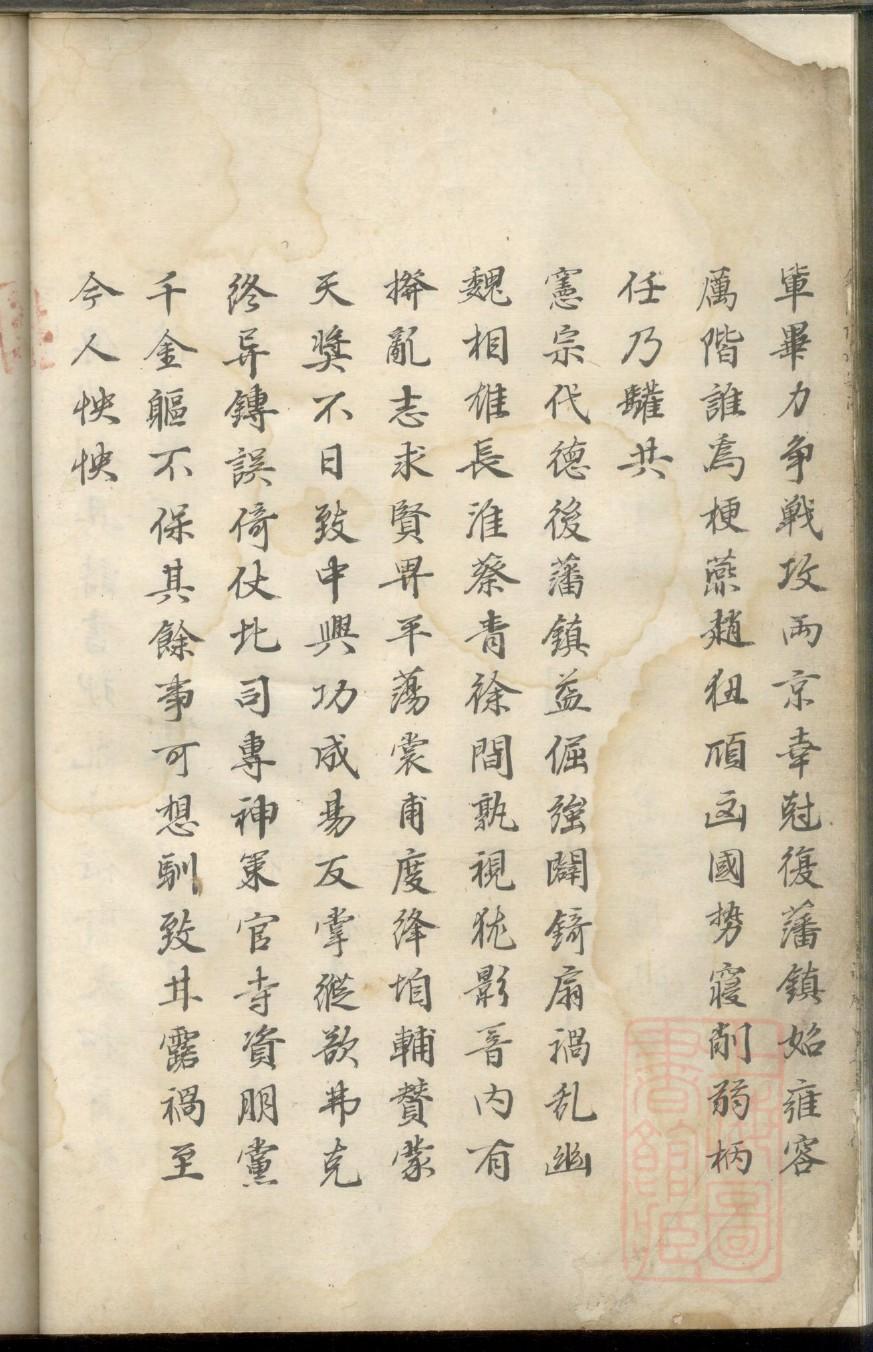 軰畢力争戰攻兩京幸尅復藩鎮始雍容
厲階誰爲梗燕趙狃頑凶國勢寖削弱柄
任乃驩共
憲宗代德後藩鎮益倔強闢錡扇禍乱幽
魏相雄長淮蔡青徐間孰視猶影響内有
撥亂志求賢畀平蕩裳甫度絳垍輔贊蒙
天奬不日致中興功成易反掌縱欲弗克
終异鎛誤倚仗北司專神策官寺資朋黨
千金軀不保其餘事可想馴致甘露禍至
今人怏怏